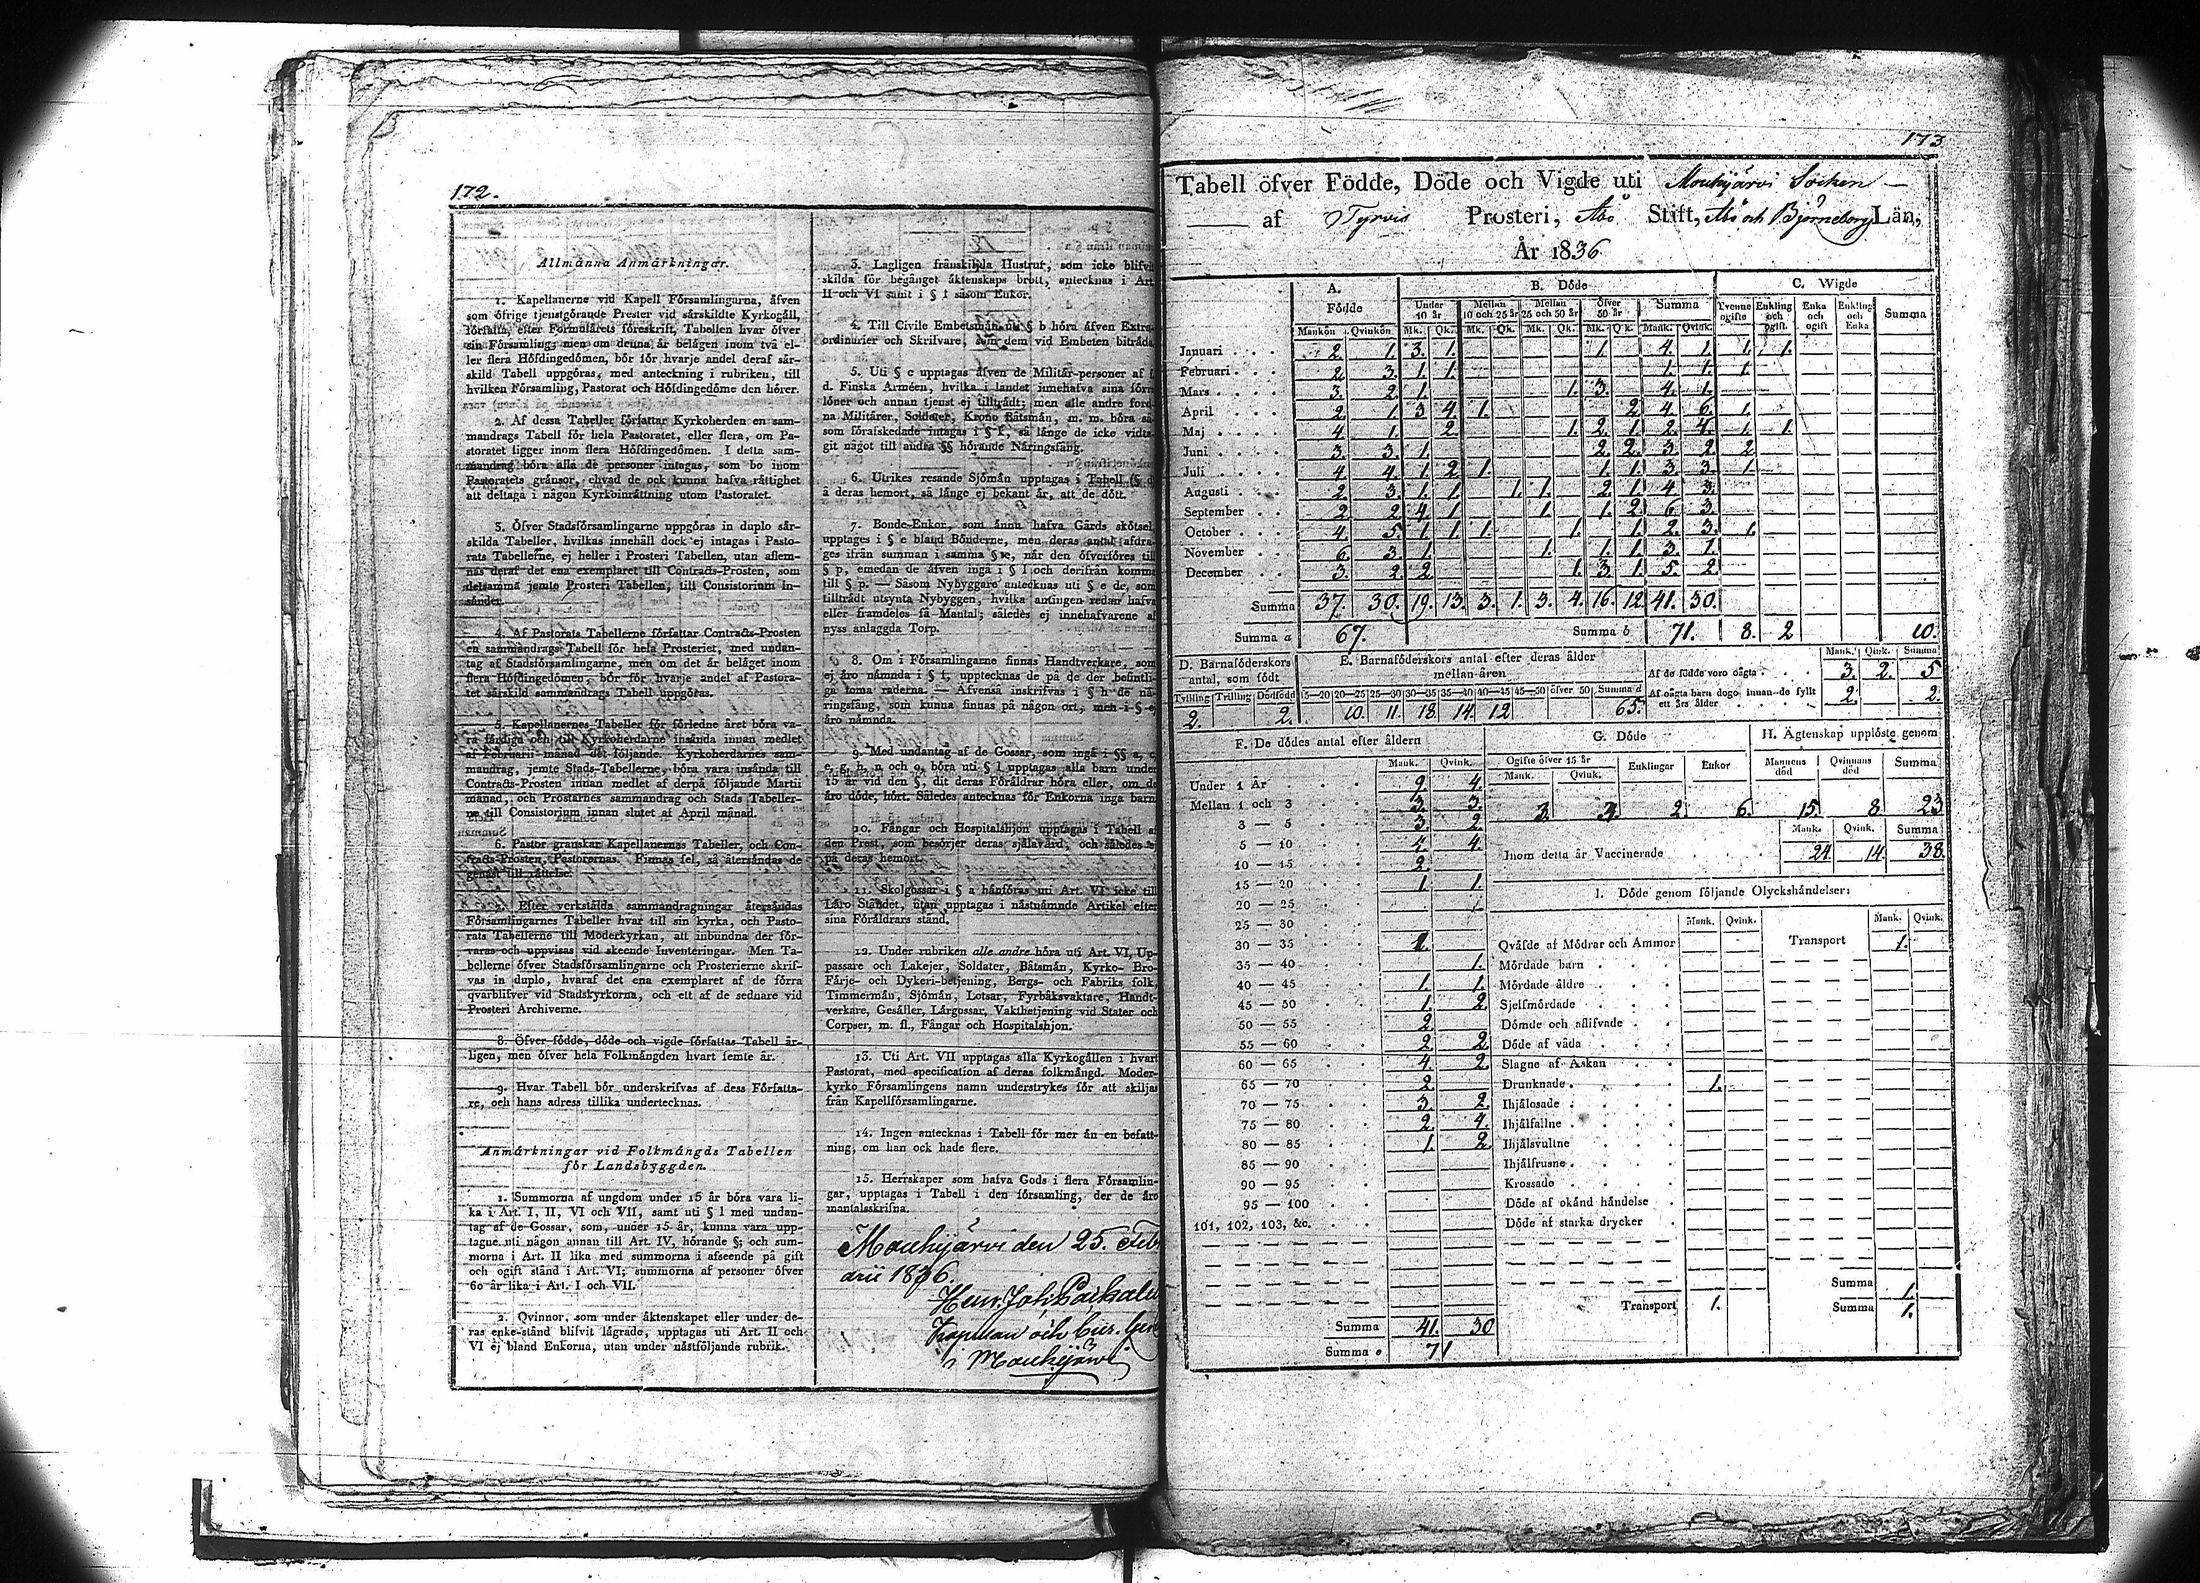 172.
Allmänna Anmärkningar.
1. Kapellanerne vid Kapell Församlingarna, äfven
som öfrige tjenstgörande Prester vid särskildte Kyrkogäll,
författa, efter Formulärets föreskrift, Tabellen hvar öfver
sin Församling; men om denna är belägen inom två el-
ler flera Höfdingedömen, bör för hvarje andel deraf sär-
skild Tabell uppgöras, med anteckning i rubriken, till
hvilken Församling, Pastorat och Höfdingedöme den hörer.
2. Af dessa Tabeller författar Kyrkoherden en sam-
mandrags Tabell för hela Pastoratet, eller flera, om Pa-
storatet ligger inom flera Höfdingedömen. I detta sam-
mandrag böra alla de personer intagas, som bo inom
Pastoratets gränsor, ehvad de ock kunna hafva rättighet
att deltaga i någon Kyrkoinrättning utom Pastoratet.
3. Öfver Stadsförsamlingarne uppgöras in duplo sär-
skilda Tabeller, hvilkas innehåll dock ej intagas i Pasto-
rats Tabellerne, ej heller i Prosteri Tabellen, utan aflem-
nas deraf det ena exemplaret till Contracts-Prosten, som
detsamma jemte Prosteri Tabellen, till Consistorium In-
sänder.
4. Af Pastorats Tabellerne författar Contracts-Prosten
en sammandrags Tabell för hela Prosteriet, med undan-
tag af Stadsförsamlingarne, men om det är beläget inom
flera Höfdingedömen, bör för hvarje andel af Pastora-
tet särskild sammandrags Tabell uppgöras.
5. Kapellanernes Tabeller för förledne året böra va-
ra färdiga och till Kyrkoherdarne insända innan medlet
af Februarii månad det följande. Kyrkoherdarnes sam-
mandrag, jemte Stads-Tabellerne, böra vara insända till
Contracts-Prosten innan medlet af derpå följande Martii
månad, och Prostarnes sammandrag och Stads Tabeller-
ne till Consistorium innan slutet af April månad.
6. Pastor granskar Kapellanernas Tabeller, och Con-
tracts-Prosten, Pastorernas. Finnas fel, så återsändas de
genast till rättelse.
7. Efter verkstälda sammandragningar återsändas
Församlingarnes Tabeller hvar till sin kyrka, och Pasto-
rats Tabellerne till Moderkyrkan, att inbundna der för-
varas och uppvisas vid skeende Inventeringar. Men Ta-
bellerne öfver Stadsförsamlingarne och Prosterierne skrif-
vas in duplo, hvaraf det ena exemplaret af de förra
qvarblifver vid Stadskyrkorna, och ett af de sednare vid
Prosteri Archiverne.
8. Öfver födde, döde och vigde författas Tabell år-
ligen, men öfver hela Folkmängden hvart femte år.
9. Hvar Tabell bör underskrifvas af dess Författa-
re, och hans adress tillika undertecknas.
Anmärkningar vid Folkmängds Tabellen
för Landsbyggden.
1. Summorna af ungdom under 15 år böra vara li-
ka i Art. I, II, VI och VII, samt uti § l med undan-
tag af de Gossar, som, under 15 år, kunna vara upp-
tagne uti någon annan till Art. IV, hörande §; och sum-
morna i Art. II lika med summorna i afseende på gift
och ogift stånd i Art. VI; summorna af personer öfver
60 år lika i Art. I och VII.
2. Qvinnor, som under äktenskapet eller under de-
ras enke-stånd blifvit lägrade, upptagas uti Art. II och
VI ej bland Enkorna, utan under nästföljande rubrik.
3. Lagligen frånskilda Hustrur, som icke blifvit
skilda för begånget äktenskaps brott, antecknas i Art.
II och VI samt i § l såsom Enkor.
4. Till Civile Embetsmän uti § b höra äfven Extra-
ordinarier och Skrifvare, som dem vid Embeten biträda.
5. Uti § c upptagas äfven de Militär-personer af f.
d. Finska Arméen, hvilka i landet innehafva sina förra
löner och annan tjenst ej tillträdt; men alle andre ford-
na Militärer, Soldater, Krono Båtsmän, m. m. böra så-
som förafskedade intagas i § f, så länge de icke vidta-
git något till andra §§ hörande Näringsfång.
6. Utrikes resande Sjömän upptagas i Tabell (§ d)
å deras hemort, så länge ej bekant är, att de dödt.
7. Bonde-Enkor, som ännu hafva Gårds skötsel,
upptages i § e bland Bönderne, men deras antal afdra-
ges ifrån summan i samma § e, når den öfverföres till
§ p, emedan de äfven ingå i § l och derifrån komma
till § p. — Såsom Nybyggare antecknas uti § e de, som
tillträdt utsynta Nybyggen, hvilka antingen redan hafva
eller framdeles få Mantal; således ej innehafvarene af
nyss anlaggda Torp.
8. Om i Församlingarne finnas Handtverkare, som
ej äro nämnda i § f, upptecknas de på de der befintli-
ga toma raderna. — Äfvenså inskrifvas i § h de nä-
ringsfång, som kunna finnas på någon ort, men i § ej
äro nämnda.
9. Med undantag af de Gossar, som ingå i §§ a, c,
e, g, h, n och o, böra uti § l upptagas alla barn under
15 år vid den §, dit deras Föräldrar höra eller, om de
äro döde, hört. Således antecknas för Enkorna inga barn.
10. Fångar och Hospitalshjon upptagas i Tabell af
den Prest, som besörjer deras själavård, och således ej
på deras hemort.
11. Skolgossar i § a hänföras uti Art. VI icke till
Läro Ståndet, utan upptagas i nästnämnde Artikel efter
sina Föräldrars stånd.
12. Under rubriken alle andre höra uti Art. VI, Up-
passare och Lakejer, Soldater, Båtsmän, Kyrko- Bro-
Färje- och Dykeri-betjening, Bergs- och Fabriks folk,
Timmermän, Sjömän, Lotsar, Fyrbåksvaktare, Handt-
verkare, Gesäller, Lärgossar, Vaktbetjening vid Stater och
Corpser, m. fl., Fångar och Hospitalshjon.
13. Uti Art. VII upptagas alla Kyrkogällen i hvart
Pastorat, med specification af deras folkmängd. Moder-
kyrko Församlingens namn understrykes för att skiljas
från Kapellförsamlingarne.
14. Ingen antecknas i Tabell för mer än en befatt-
ning, om han ock hade flere.
15. Herrskaper som hafva Gods i flera Församlin-
gar, upptagas i Tabell i den församling, der de äro
mantalsskrifna.
Mouhijärvi den 25. Febr
arii 1836.
Henr. Joh:
Kapellan och
i Mouhijärvi
173
Tabell öfver Födde, Döde och Vigde uti Mouhijärvi Socken
af Tyrvis Prosteri, Åbo Stift, Åbo och Björneborgs Län,
År 1836
A. Födde B. Döde C. Wigde
Under 10 år Mellan 10 och 25 år Mellan 25 och 50 år Öfver 50 år Summa Tvenne ogifte Enkling och ogift. Enka och ogift Enkling och Enka Summa
Mankön Qvinkön Mk. Qk. Mk. Qk. Mk. Qk. Mk. Qk. Mank. Qvink.
Januari 2. 1. 3. 1. 1. 4. 1. 1. 1.
Februari 2. 3. 1. 1. 1. 1. 1.
Mars 3. 2. 1. 1. 3. 4. 1.
April 2. 1. 3 4 1. 2 4. 6. 1.
Maj 4. 1. 2. 1. 2. 1. 2. 4. 1. 1.
Juni 3. 3. 1. 2. 2. 3. 2 2
Juli 4. 4. 1. 2 1. 1. 1. 3. 3. 1.
Augusti 2. 3. 1. 1. 1. 1. 2. 1. 4. 3.
September 2. 2. 4. 1. 1. 1. 2. 6. 3.
October 4. 5. 1. 1. 1. 1. 1. 2. 3. 1.
November 6. 3. 1. 1. 1. 1. 3. 1.
December 3. 2. 2. 1. 3. 1. 5. 2.
Summa 37. 30. 19. 13. 3. 1. 3. 4. 16. 12. 41. 30.
Summa a 67. Summa b 71. 8. 2 10.
D. Barnaföderskors antal, som födt
Tvilling Trilling Dödfödd
2. 2.
E. Barnaföderskors antal efter deras ålder mellan åren
15—20 20—25 25—30 30—35 35—40 40—45 45—50 öfver 50 Summa d
10. 11. 18. 14. 12 65.
Mank. Qink. Summa
Af de födde voro oägta 3. 2. 5
Af oägta barn dogo innan de fyllt ett års ålder 2. 2.
F. De dödes antal efter åldern
Mank. Qvink.
Under 1 År 9. 4.
Mellan 1 och 3 3. 3.
3 — 5 3. 2.
5 — 10 4. 4.
10 — 15 2.
15 — 20 1. 1.
20 — 25
25 — 30
30 — 35
35 — 40 1.
40 — 45 1. 1.
45 — 50 1. 2
50 — 55 2.
55 — 60 2. 2.
60 — 65 4. 2.
65 — 70 2.
70 — 75 3. 2.
75 — 80 2. 4.
80 — 85 1. 2.
85 — 90
90 — 95
95 — 100
101, 102, 103, &c.
Summa 41. 30
Summa e 71
G. Döde
Ogifte öfver 15 år Enklingar Enkor
Mank. Qvink.
3. 3. 2. 6.
H. Ägtenskap upplöste genom
Mannens död Qvinnans död Summa
15. 8. 23
Mank. Qvink. Summa
Inom detta år Vaccinerade 24. 14. 38.
I. Döde genom följande Olyckshändelser:
Mank. Qvink. Mank. Qvink.
Qväfde af Mödrar och Ammor Transport 1.
Mördade barn
Mördade äldre
Sjelfmördade
Dömde och aflifvade
Döde af våda
Slagne af Åskan
Drunknade 1.
Ihjälosade
Ihjälfallne
Ihjälsvultne
Ihjälfrusne
Krossade
Döde af okänd händelse
Döde af starka drycker
Summa 1.
Transport 1. Summa 1.